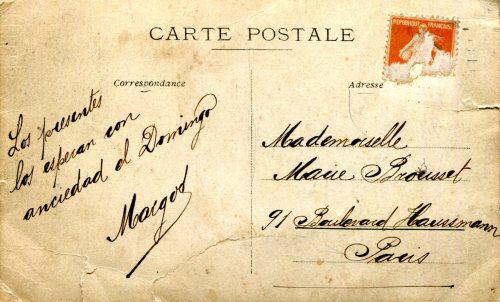 CARTE POSTALE
REPUBLIQUE FRANÇAISE
Correspondance
Adresse
Los presentes
los esperan con
anciedad el Domingo
Margot
Mademoiselle
Marie Brousset
91 Boulevard Haussmann
Paris